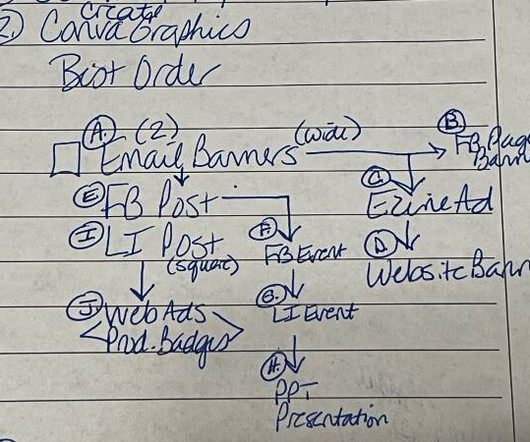 2.) Create
Canva Graphics
Best Order
A. (2)
Email Banners (wide)
B.
FB Page
Bann
C.
Ezine Ad
D.
Website Bann
E FB Post
F.
FB Event
G.
LI Event
H.
PPT
Presentation
I LI Post
(square)
J Web Ads
Prod. Badges